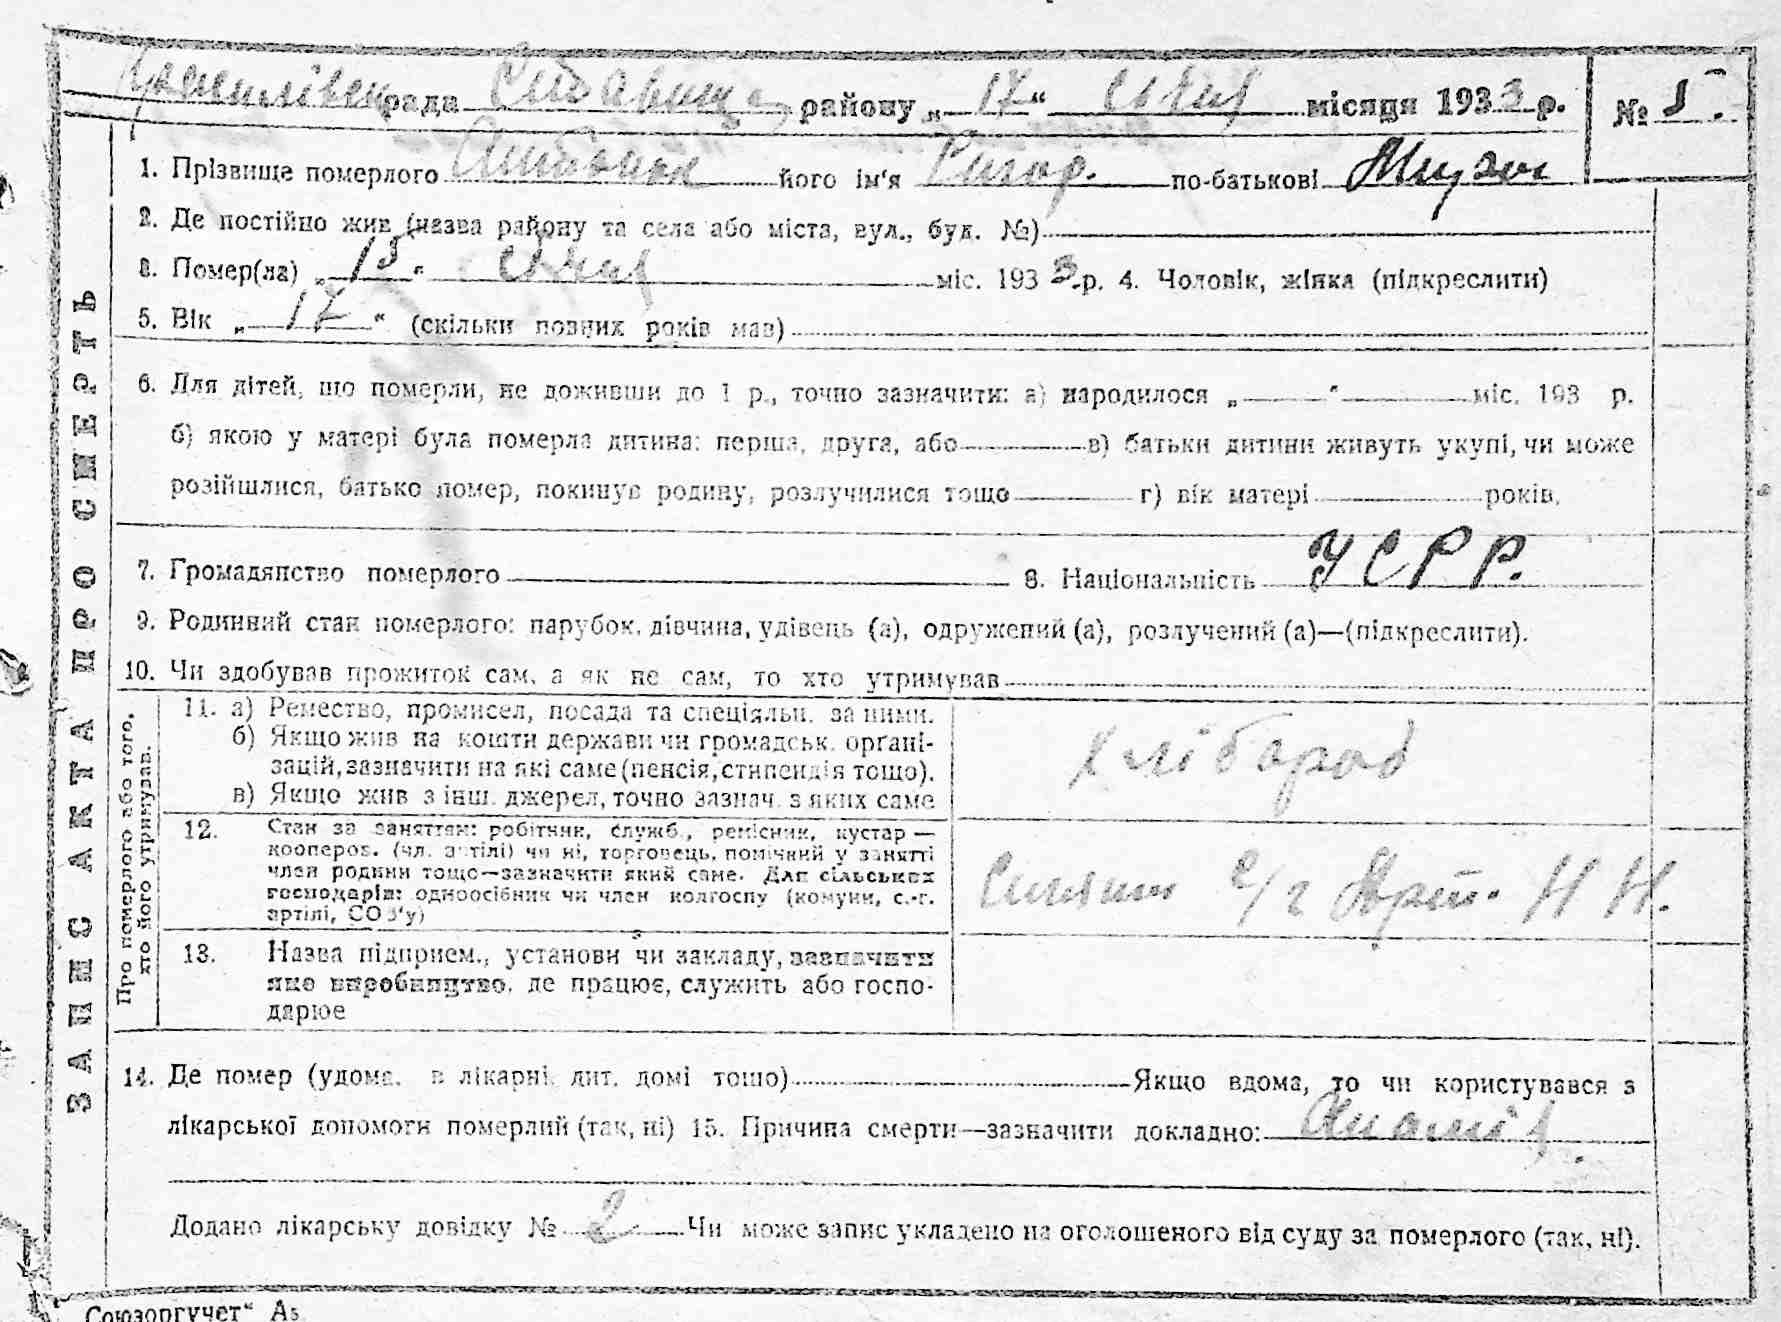 рада Ставище району „ 17 “ січня місяця 1933 р. № 5.
1. Прізвище померлого його ім'я Григор. по-батькові
2. Де постійно жив (назва району та села або міста, вул., буд. №)
3. Помер(ла) „ 15 “ січня міс. 193 3 р. 4. Чоловік, жінка (підкреслити)
5. Вік „ 17 “ (скільки повних років мав)
6. Для дітей, що померли, не доживши до 1 р., точно зазначити: а) народилося „ “ міс. 193 р.
б) якою у матері була померла дитина: перша, друга, або в) батьки дитини живуть укупі, чи може
розійшлися, батько помер, покинув родину, розлучилися тощо г) вік матері років.
7. Громадянство померлого 8. Національність УСРР.
9. Родинний стан померлого: парубок, дівчина, удівець (а), одружений (а), розлучений (а)—(підкреслити).
10. Чи здобував прожиток сам, а як не сам, то хто утримував
11. а) Ремество, промисел, посада та спеціяльн. за ними.
б) Якщо жив на кошти держави чи громадськ. орґані-
зацій, зазначити на які саме (пенсія, стипендія тощо).
в) Якщо жив з інш. джерел, точно зазнач. з яких саме
хлібороб
12. Стан за заняттям: робітник, служб., ремісник, кустар —
кооперов. (чл. артілі) чи ні, торговець, помічний у занятті
член родини тощо—зазначити який саме. Для сільських
господарів: одноосібник чи член колгоспу (комуни, с.-г.
артілі, СОЗ'у)
с/г Арт. Н Н.
13. Назва підприєм., установи чи закладу, зазначити
яке виробництво, де працює, служить або госпо-
дарює
14. Де помер (удома, в лікарні, дит. домі тощо) Якщо вдома, то чи користувався з
лікарської допомоги померлий (так, ні) 15. Причина смерти—зазначити докладно: Анемія
Додано лікарську довідку № 2 Чи може запис укладено на оголошеного від суду за померлого (так, ні).
ЗАПИС АКТА ПРО СМЕРТЬ
Про померлого або того,
хто його утримував.
Союзоргучет“ А5